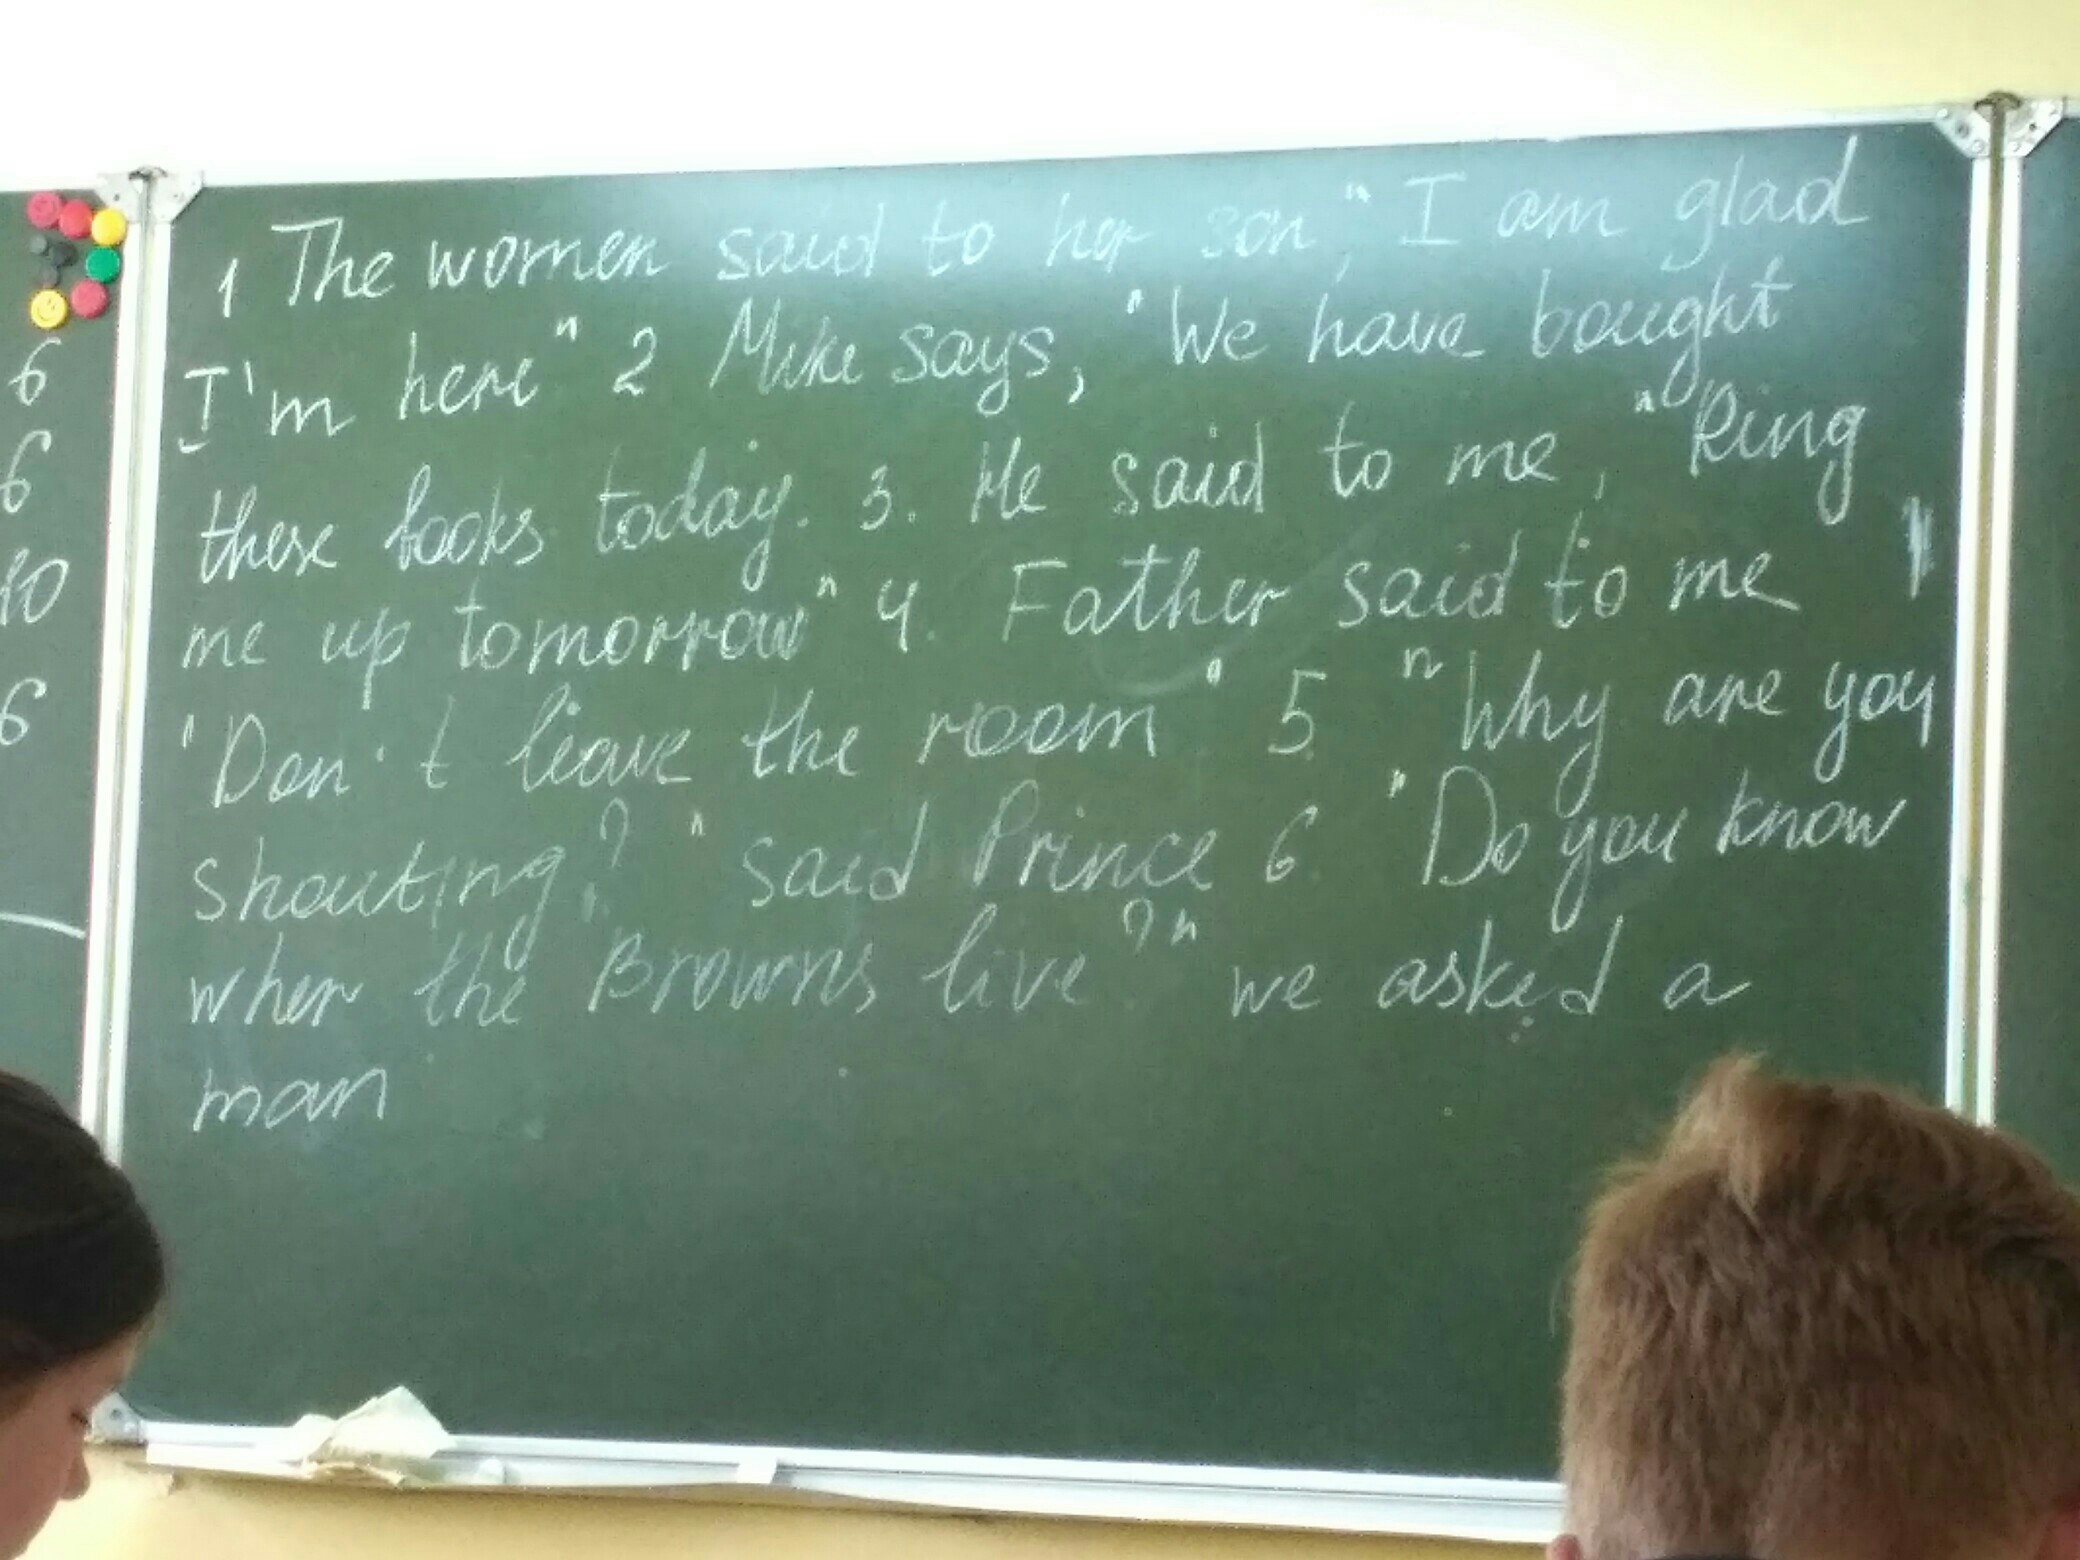 6
6
10
6
1 The women said to her son, "I am glad
I'm here" 2 Mike says, "We have bought
these books today. 3. He said to me, "Ring
me up tomorrow" 4. Father said to me
"Don't leave the room" 5. "Why are you
shouting?" said Prince 6. "Do you know
wher the Browns live?" we asked a
man